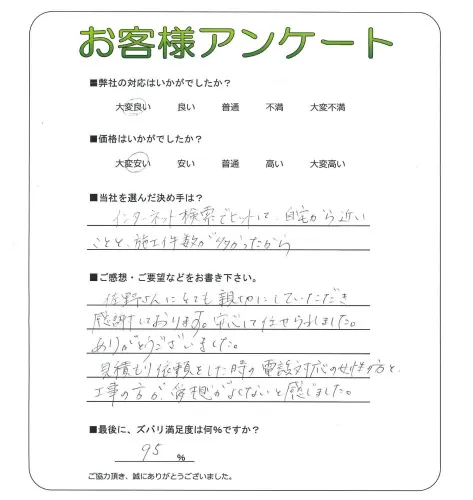 お客様アンケート
■弊社の対応はいかがでしたか？
大変良い 良い 普通 不満 大変不満
■価格はいかがでしたか？
大変安い 安い 普通 高い 大変高い
■当社を選んだ決め手は？
インターネット検索でヒットし、自宅から近い
ことと、施工件数が多かったから
■ご感想・ご要望などをお書き下さい。
佐野さんにとても親切にしていただき
感謝しております。安心して任せられました。
ありがとうございました。
見積もり依頼をした時の電話対応の女性の方と、
工事の方が、愛想がよくないと感じました。
■最後に、ズバリ満足度は何%ですか？
95 %
ご協力頂き、誠にありがとうございました。